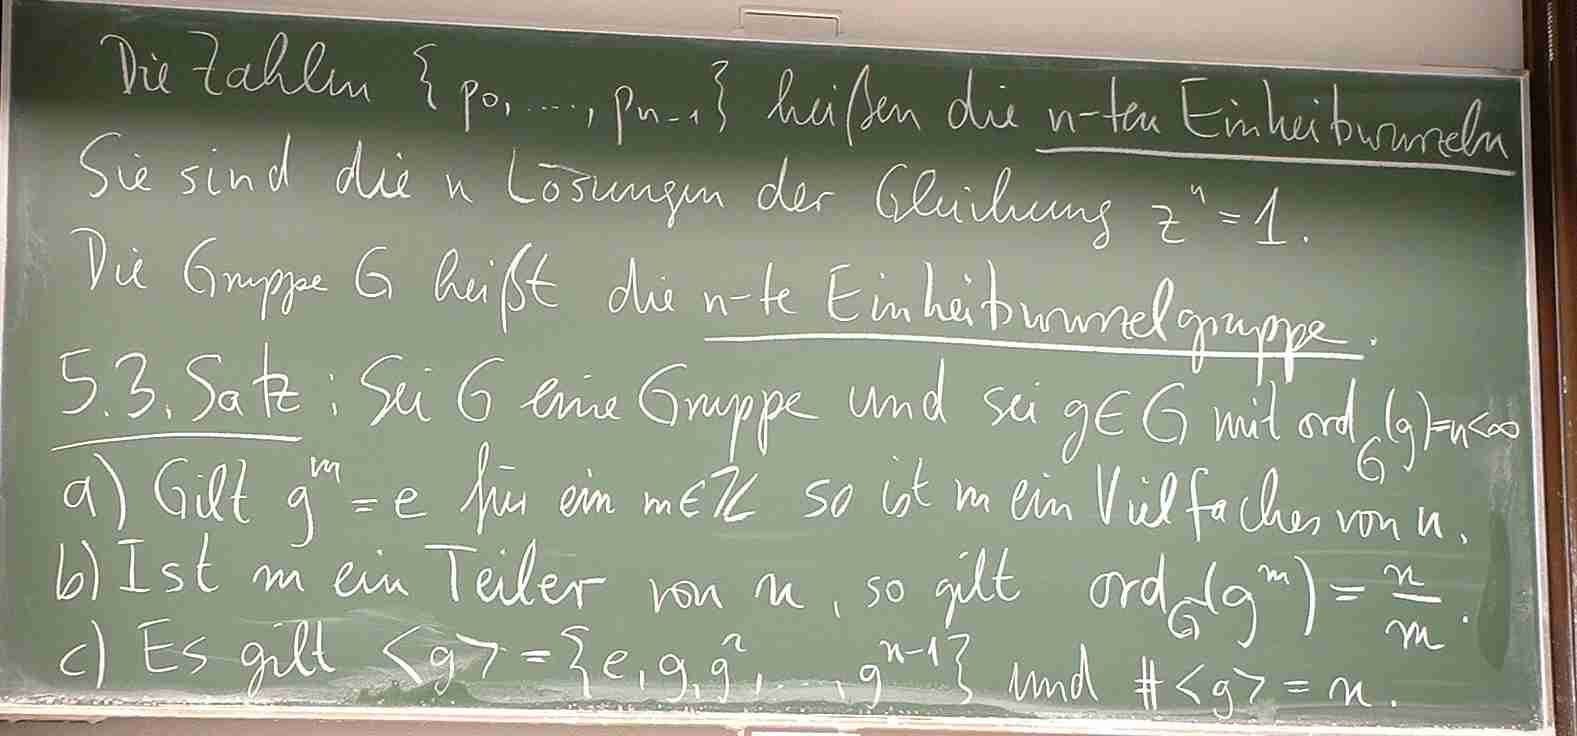 Die Zahlen {p₀, ...., pₙ₋₁} heißen die n-ten Einheitswurzeln
Sie sind die n Lösungen der Gleichung zⁿ = 1.
Die Gruppe G heißt die n-te Einheitswurzelgruppe.
5.3. Satz: Sei G eine Gruppe und sei g∈G mit ord_G(g)=n<∞
a) Gilt g^m = e für ein m∈ℤ so ist m ein Vielfaches von n.
b) Ist m ein Teiler von n, so gilt ord_G(g^m) = n/m.
c) Es gilt <g> = {e, g, g², ..., g^{n-1}} und #<g> = n.